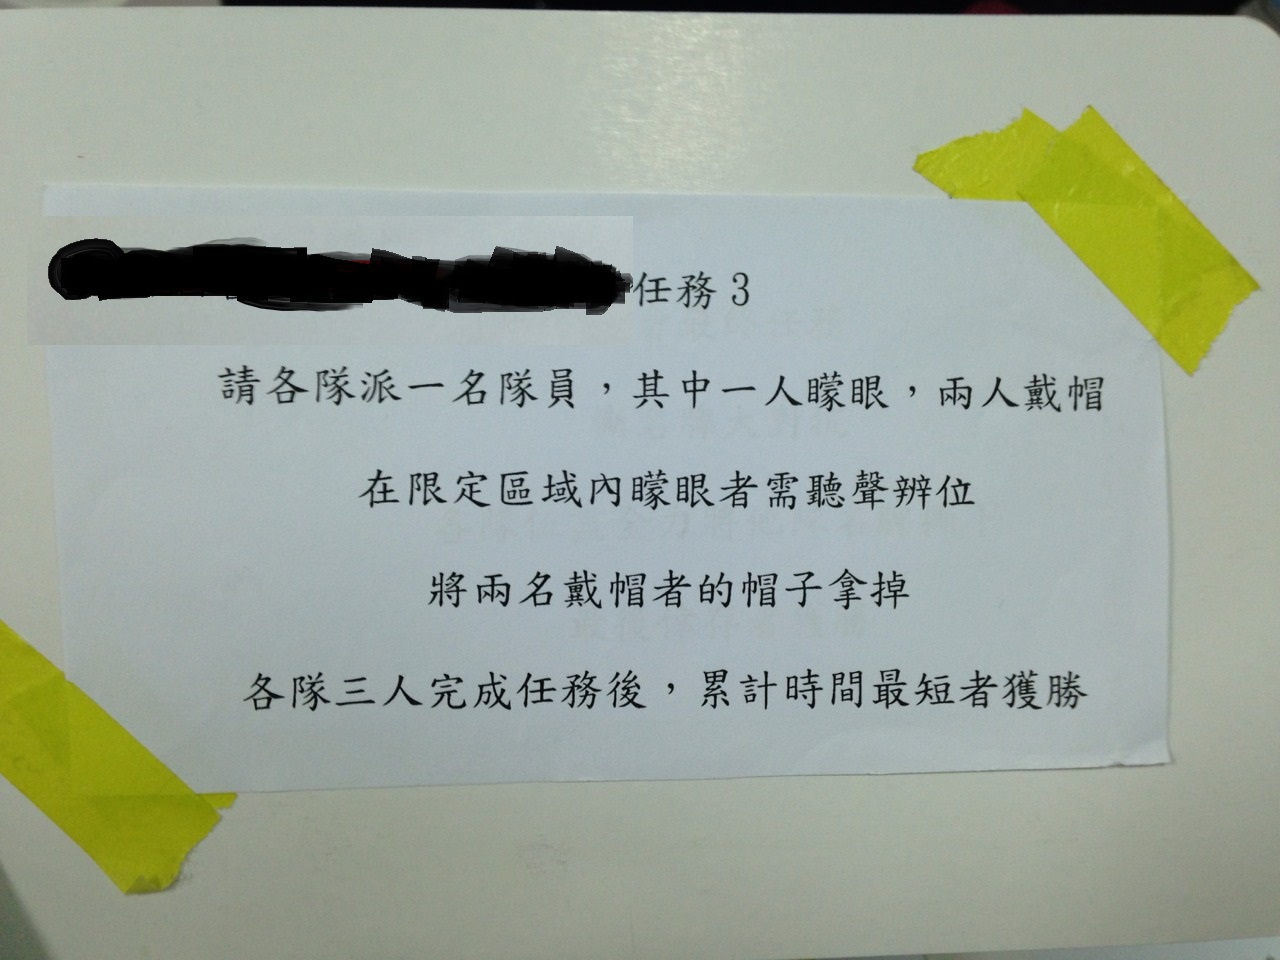 任務3
請各隊派一名隊員，其中一人矇眼，兩人戴帽
在限定區域內矇眼者需聽聲辨位
將兩名戴帽者的帽子拿掉
各隊三人完成任務後，累計時間最短者獲勝